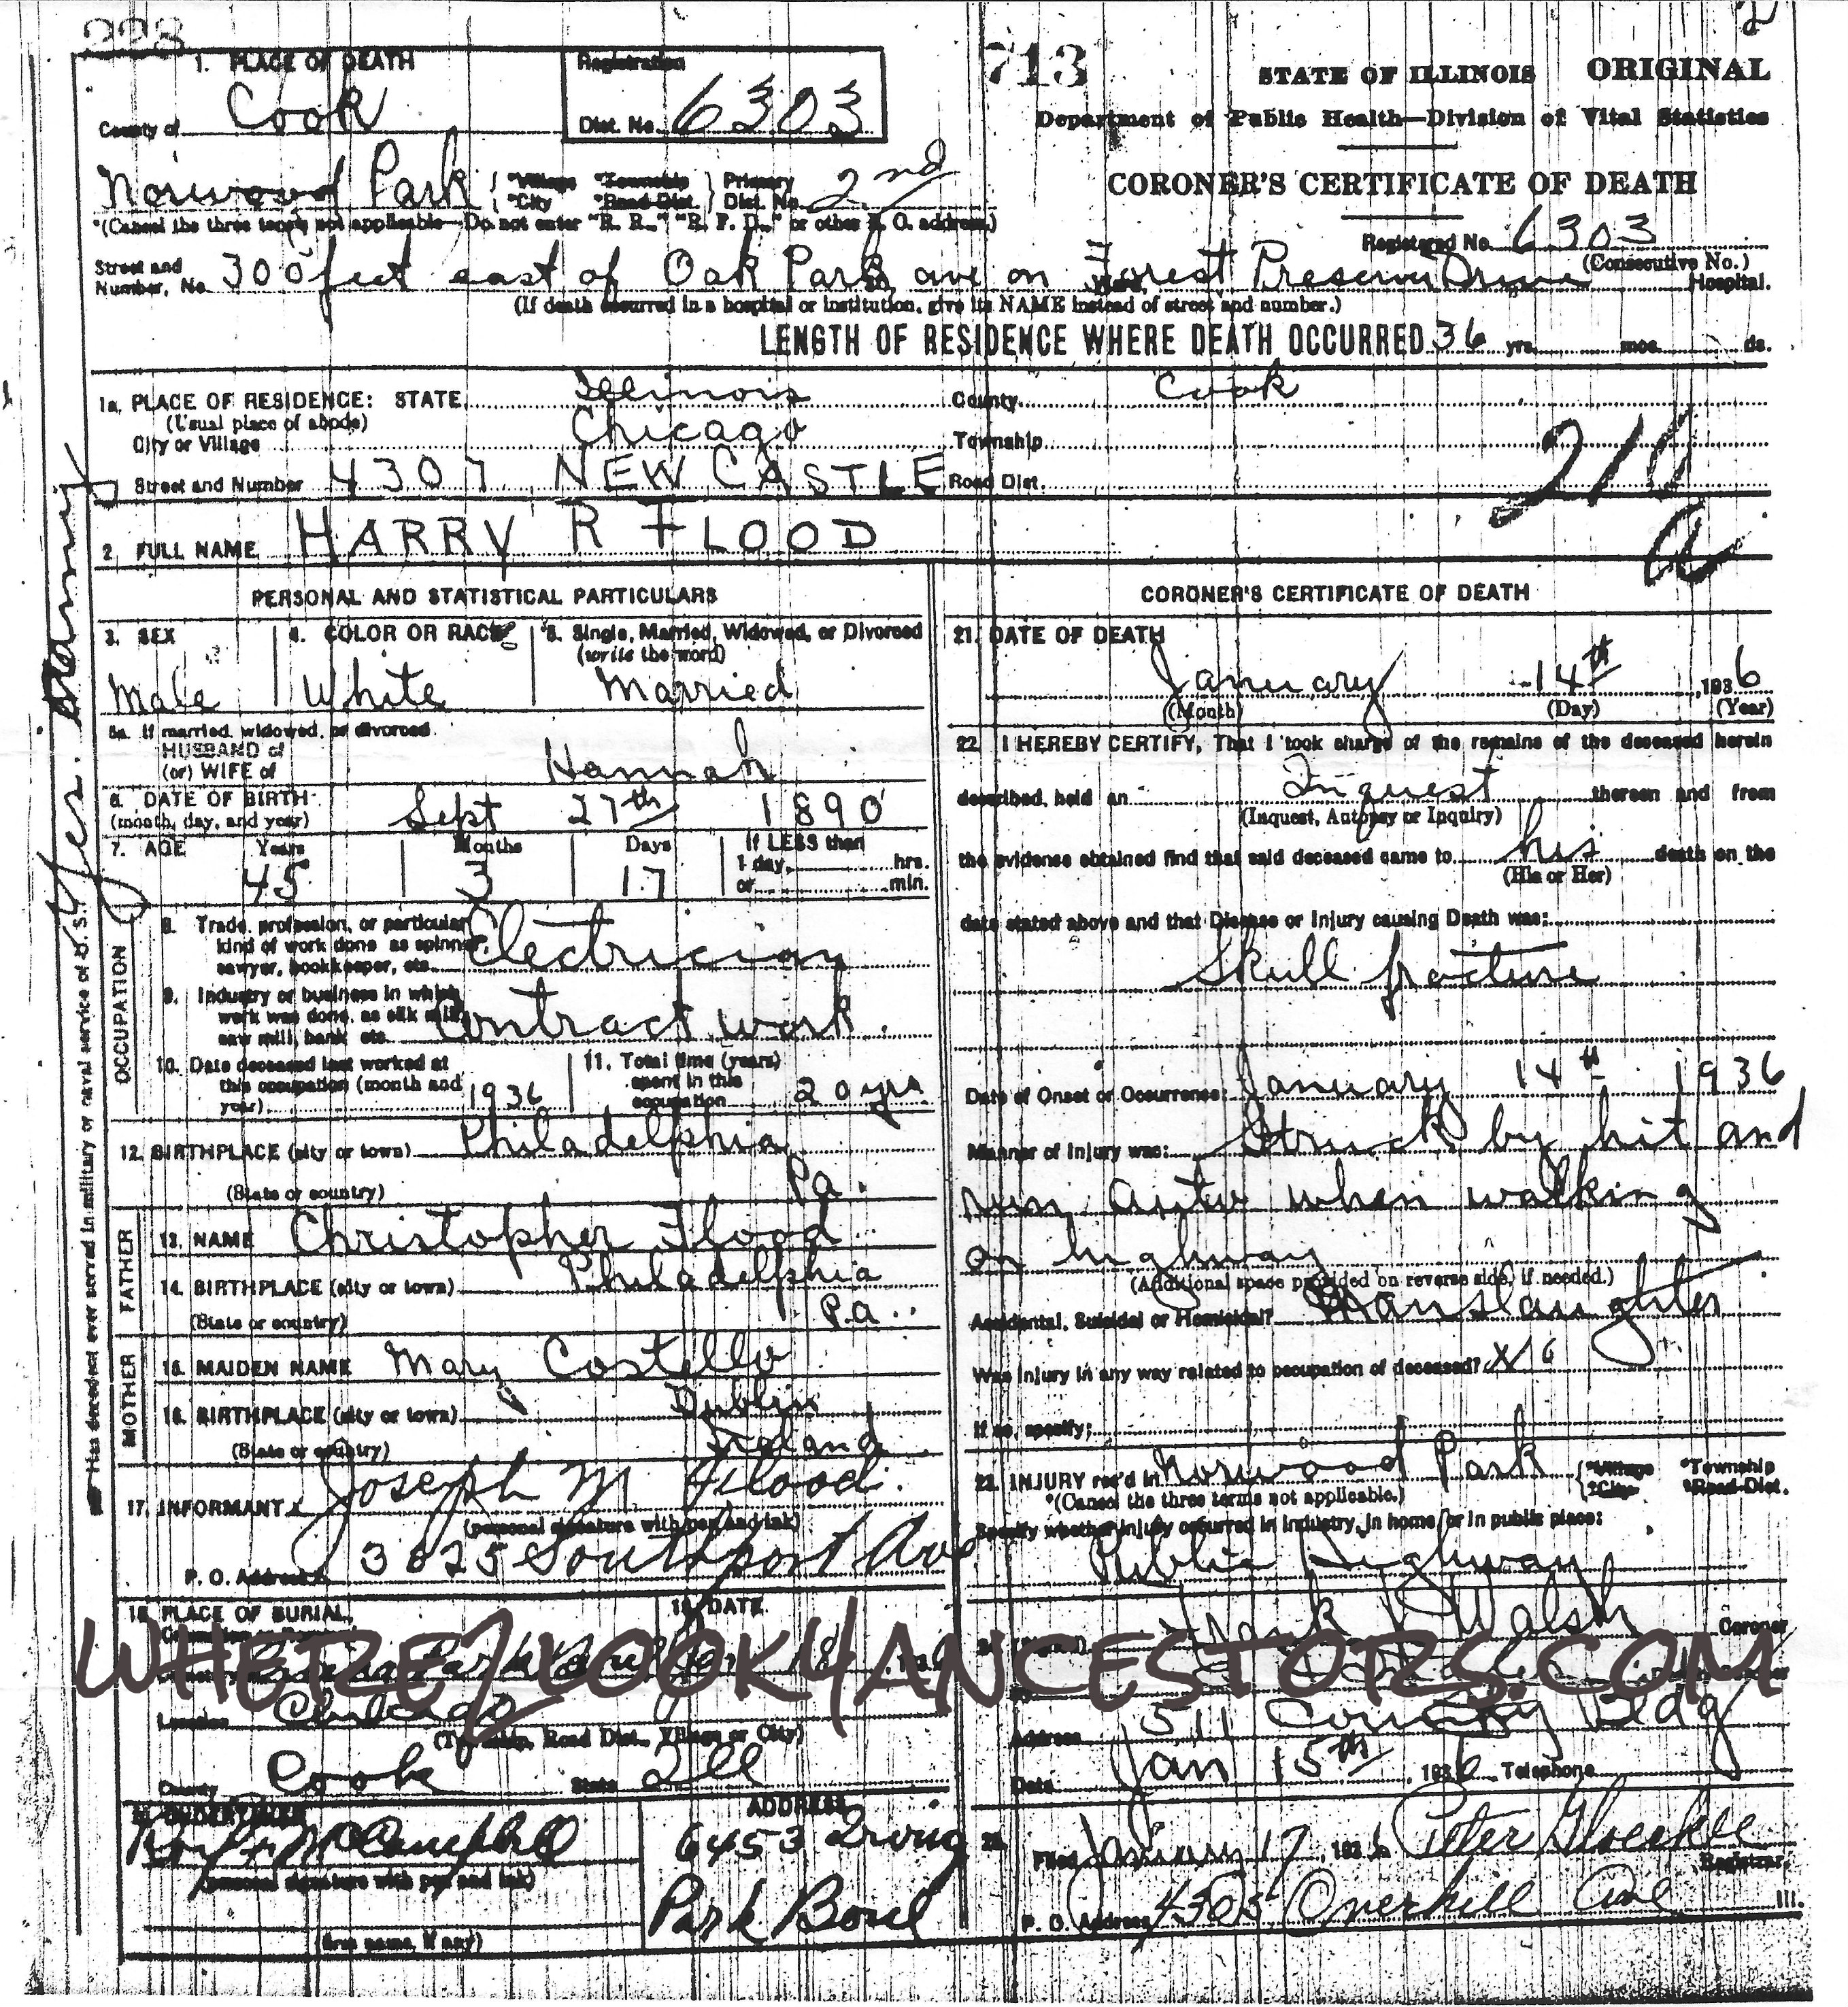 228
713
2
1. PLACE OF DEATH
Registration
STATE OF ILLINOIS ORIGINAL
County of Cook
Dist. No. 6303
Department of Public Health—Division of Vital Statistics
CORONER'S CERTIFICATE OF DEATH
Norwood Park { *Village *Township } Primary 2nd
*City *Road Dist. Dist. No.
*(Cancel the three terms not applicable—Do not enter "R. R.," "R. F. D.," or other P. O. address.)
Registered No. 6303
(Consecutive No.)
Street and Number, No. 300 feet east of Oak Park ave on Forest Preserve Drive Hospital.
(If death occurred in a hospital or institution, give its NAME instead of street and number.)
LENGTH OF RESIDENCE WHERE DEATH OCCURRED 36 yrs. mos. ds.
1a. PLACE OF RESIDENCE: STATE Illinois County Cook
(Usual place of abode)
City or Village Chicago Township
Street and Number 4307 NEW CASTLE Road Dist.
210
a
2. FULL NAME HARRY R FLOOD
Has deceased ever served in military or naval service of U. S.? Yes.
PERSONAL AND STATISTICAL PARTICULARS
3. SEX 4. COLOR OR RACE 5. Single, Married, Widowed, or Divorced
(write the word)
Male White Married
5a. If married, widowed, or divorced
HUSBAND of
(or) WIFE of Hannah
6. DATE OF BIRTH
(month, day, and year) Sept 27th 1890
7. AGE Years Months Days If LESS than
1 day, hrs.
45 3 17 or min.
OCCUPATION
8. Trade, profession, or particular
kind of work done as spinner,
sawyer, bookkeeper, etc. Electrician
9. Industry or business in which
work was done, as silk mill,
saw mill, bank etc. Contract work.
10. Date deceased last worked at
this occupation (month and
year) 1936
11. Total time (years)
spent in this
occupation 20 yrs
12. BIRTHPLACE (city or town) Philadelphia
(State or country) Pa.
FATHER
13. NAME Christopher Flood
14. BIRTHPLACE (city or town) Philadelphia
(State or country) Pa.
MOTHER
15. MAIDEN NAME Mary Costello
16. BIRTHPLACE (city or town) Dublin
(State or country) Ireland
17. INFORMANT Joseph M Flood.
(personal signature with pen and ink)
P. O. Address 3825 Southport Ave
18. PLACE OF BURIAL, 19. DATE
Jan 18
Location Chicago
(Township, Road Dist., Village or City)
County Cook State Ill
20. UNDERTAKER ADDRESS
6453 Irving
(personal signature with pen and ink)
Park Boul
(firm name, if any)
CORONER'S CERTIFICATE OF DEATH
21. DATE OF DEATH
January 14th, 1936
(Month) (Day) (Year)
22. I HEREBY CERTIFY, That I took charge of the remains of the deceased herein
described, held an Inquest thereon and from
(Inquest, Autopsy or Inquiry)
the evidence obtained find that said deceased came to his death on the
(His or Her)
date stated above and that Disease or Injury causing Death was:
Skull fracture
Date of Onset or Occurrence: January 14th 1936
Manner of Injury was: Struck by hit and
run auto when walking
on highway
(Additional space provided on reverse side, if needed.)
Accidental, Suicidal or Homicidal? Manslaughter
Was injury in any way related to occupation of deceased? No
If so, specify:
23. INJURY rec'd in Norwood Park { *Village *Township
*City *Road Dist.
*(Cancel the three terms not applicable.)
Specify whether injury occurred in industry, in home, or in public place:
Public Highway
Frank J Walsh Coroner
WHERE2LOOK4ANCESTORS.COM
Address 511 County Bldg
Date Jan 15th, 1936 Telephone
25. Filed January 17, 1936 Peter
Registrar.
P. O. Address 4305 Overhill Ave Ill.